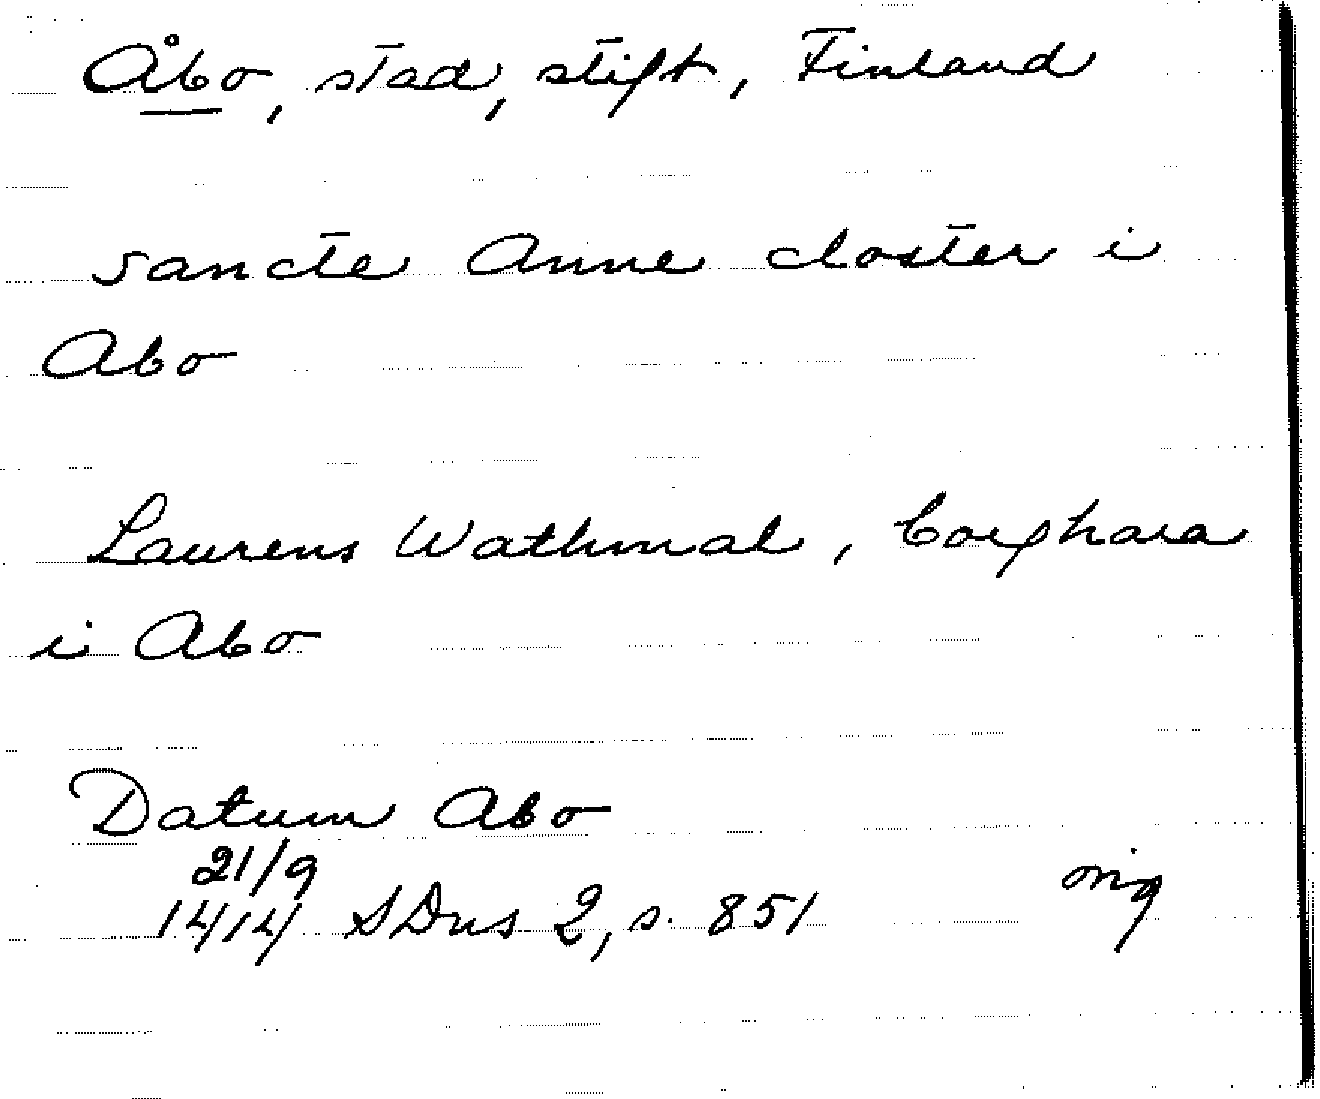 Åbo, stad, stift, Finland
sancte Anne closter i
Abo
Laurens Wathmal, borghara
i Abo
Datum Abo
21/9
1414 SDns 2, s. 851 orig